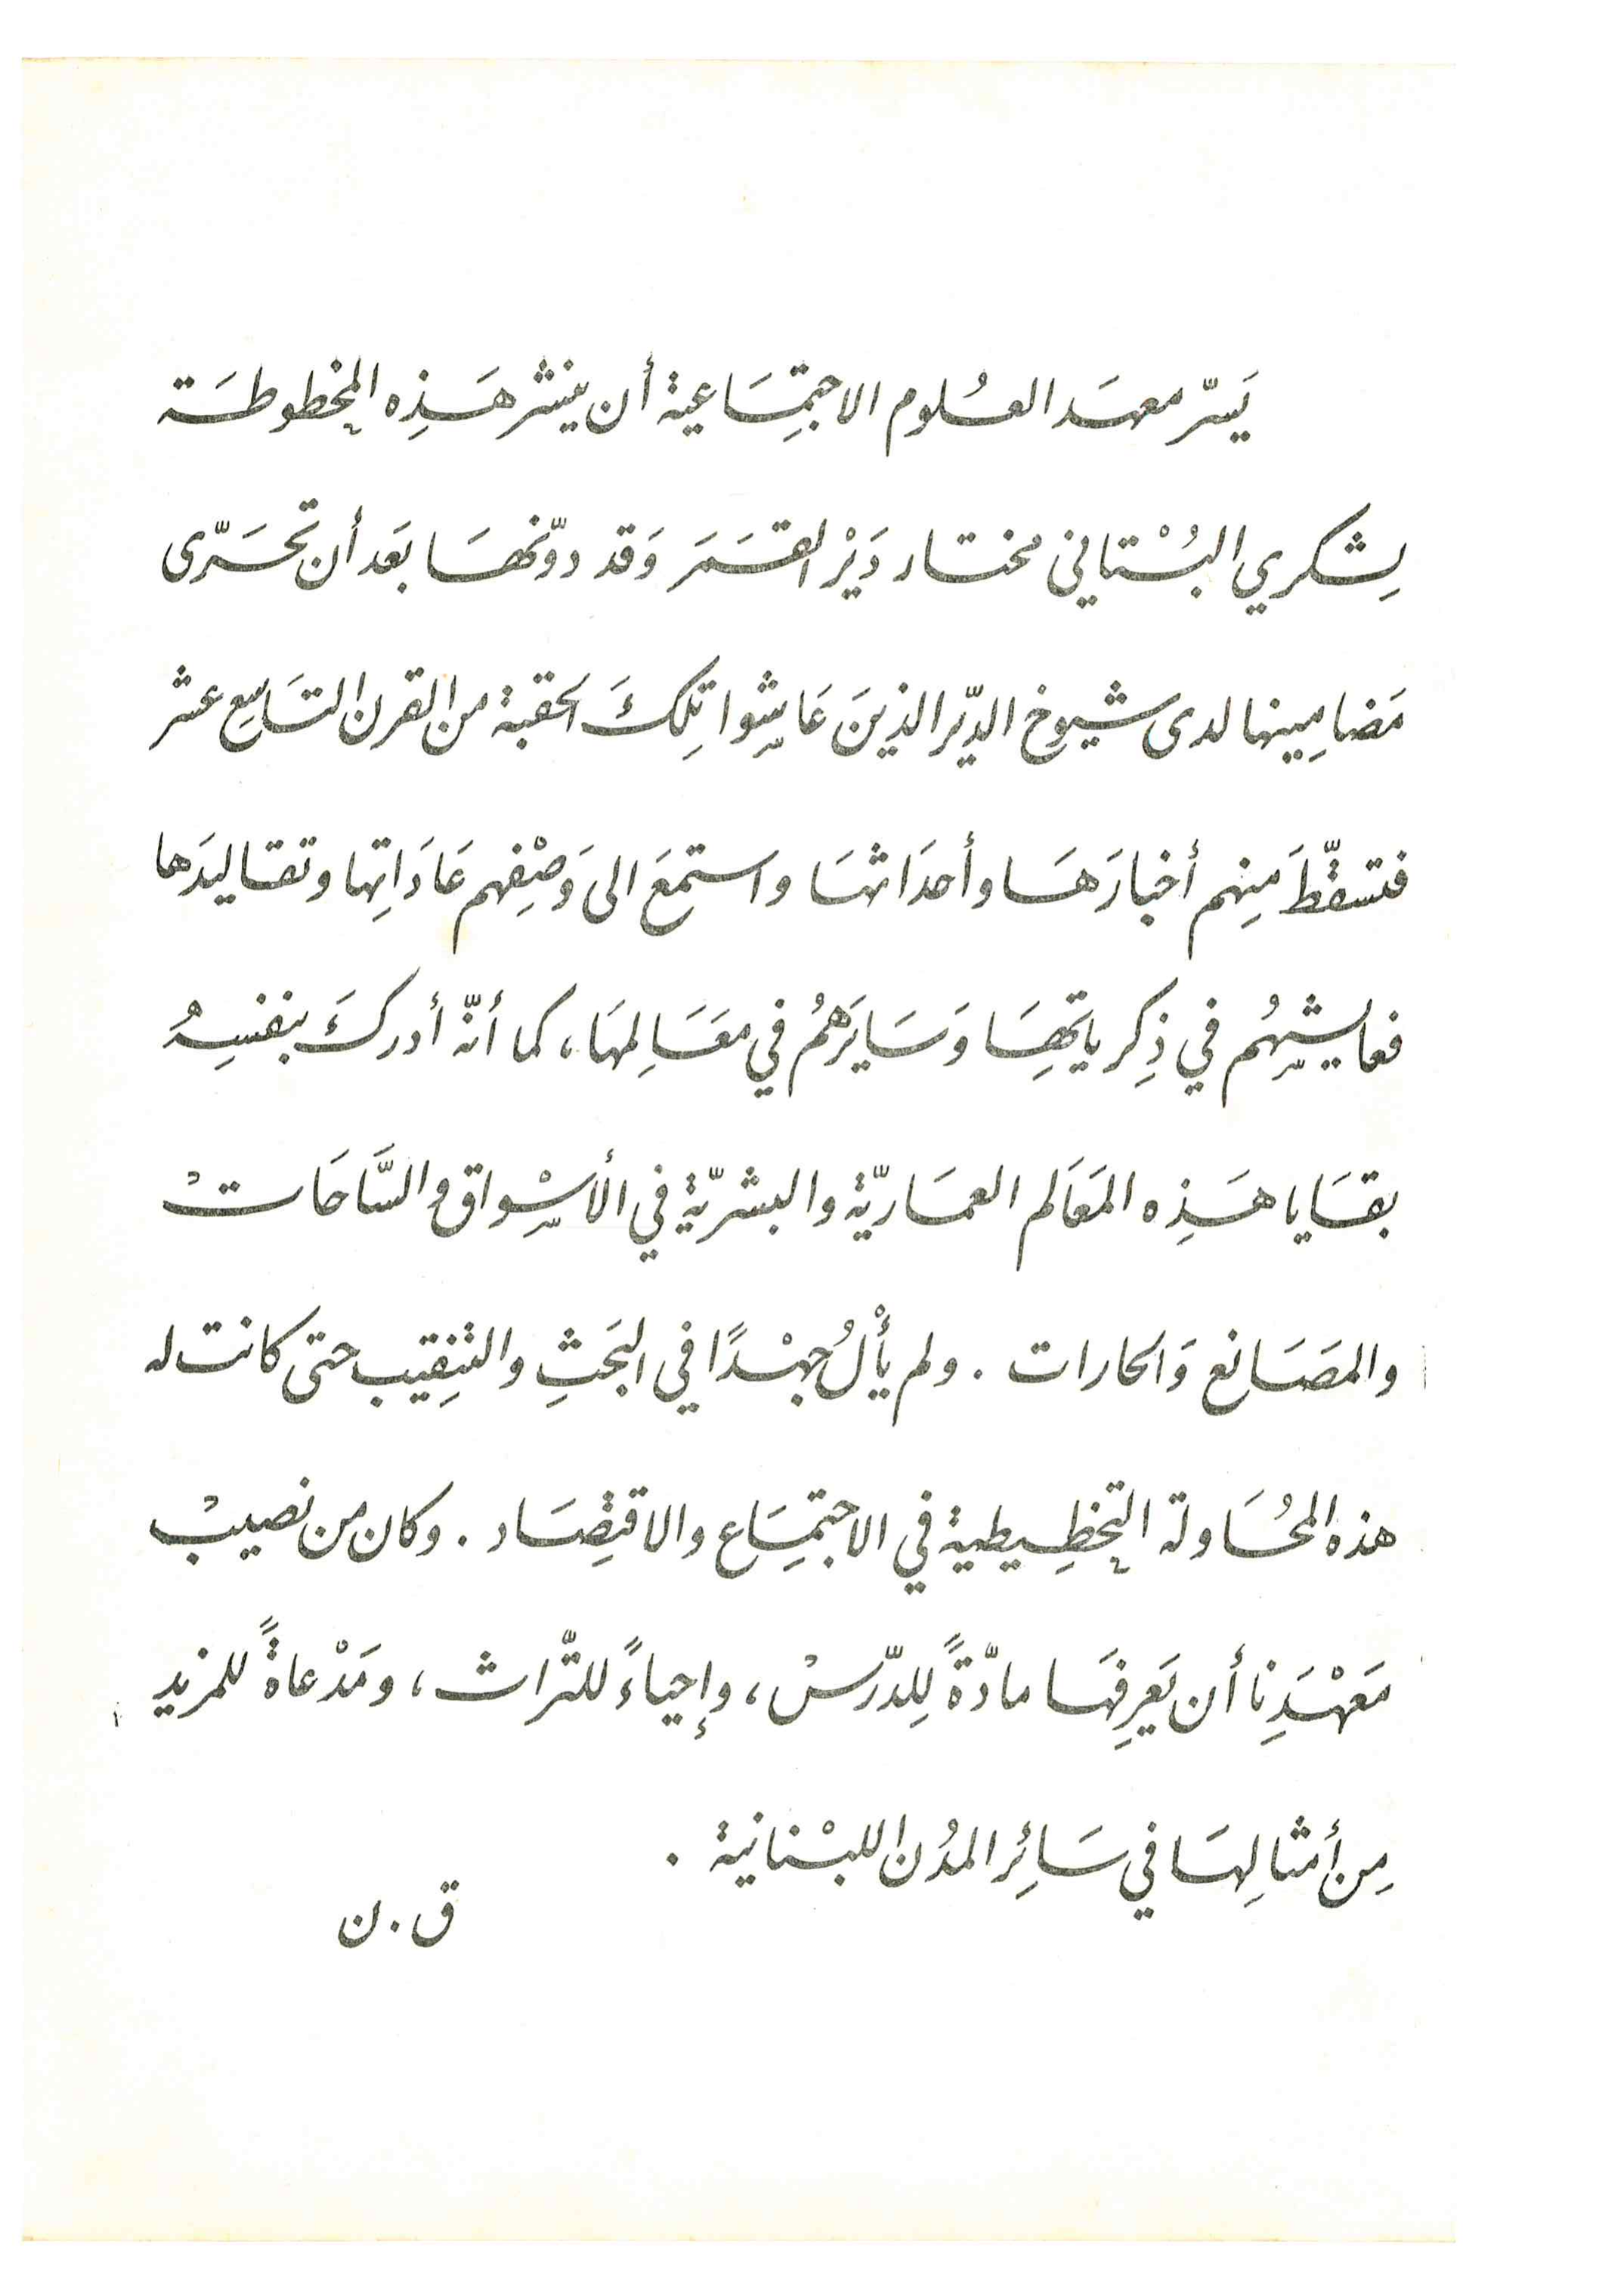 يَسرّ معهَد العسُلوم الاجتِمَاعية أن ينشر هَذِه المخطوطَة
لِشكري البُسْتاني مختار دَيْر القَمَر وَقد دوّنهَا بعَد أن تحَرّى
مَضامِينها لدى شيوخ الديّر الذينَ عَايشِوا تِلكَ الحقبة من القرن التَاسِع عشر
فتسقّطَ مِنهم أخبارَهَا وأحدَاثهَا واستمعَ الى وَصْفِهم عَادَاتِها وتقاليدَها
فعايشهُم في ذِكرياتهِا وَسَايَرَهمُ في معَالِمهَا، كما أنّه أدركَ بنفسِهُ
بقَايا هَذِه المَعَالم العمَاريّة والبشريّة في الأسْواق والسَّاحَاتْ
والمصَانع وَالحارات. ولم يأْلُ جهْدًا في البَحثِ والتنِقيب حتى كانت له
هذه المحُاولة التخطِيطية في الاجتِمَاع والاقتِصَاد. وكان من نصيبْ
مَعَهْدَنِا أن يَعرِفهَا مادّةً لِلدّرسْ، وإحياءً للتّراث، ومَدْعاةً للمزيد
مِن أمثالِهَا في سَائِر المدُن اللبْنانية.
ق.ن